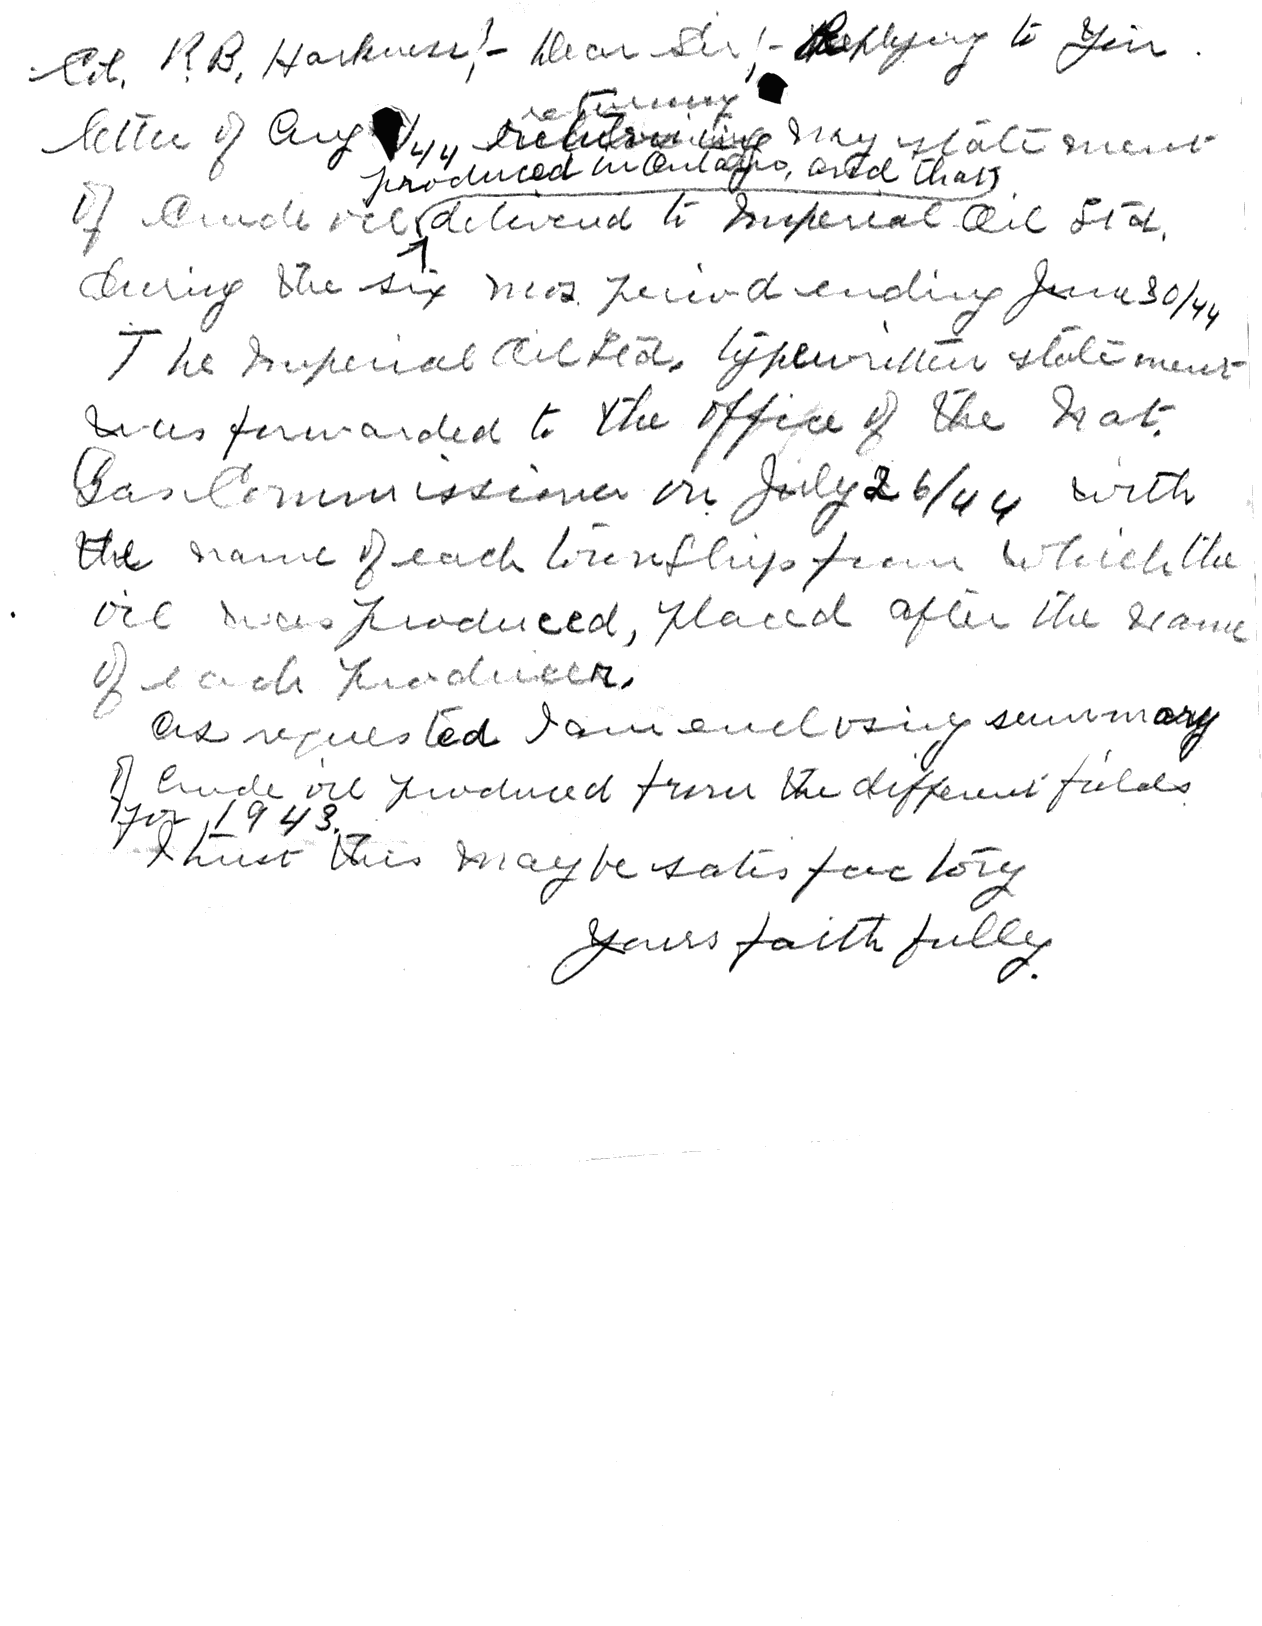 Col. R.B. Harkness!- Dear Sir!- Replying to your
letter of Aug /44 returning my statement
produced in Ontario, and that
of Crude oil delivered to Imperial Oil Ltd.
during the six mos. period ending June 30/44
The Imperial Oil Ltd. typewritten statement
was forwarded to the office of the Nat.
Gas Commissioner on July 26/44 with
the name of each township from which the
oil was produced, placed after the name
of each producer.
As requested I am enclosing summary
of Crude oil produced from the different fields
for 1943.
I trust this may be satisfactory
Yours faithfully.